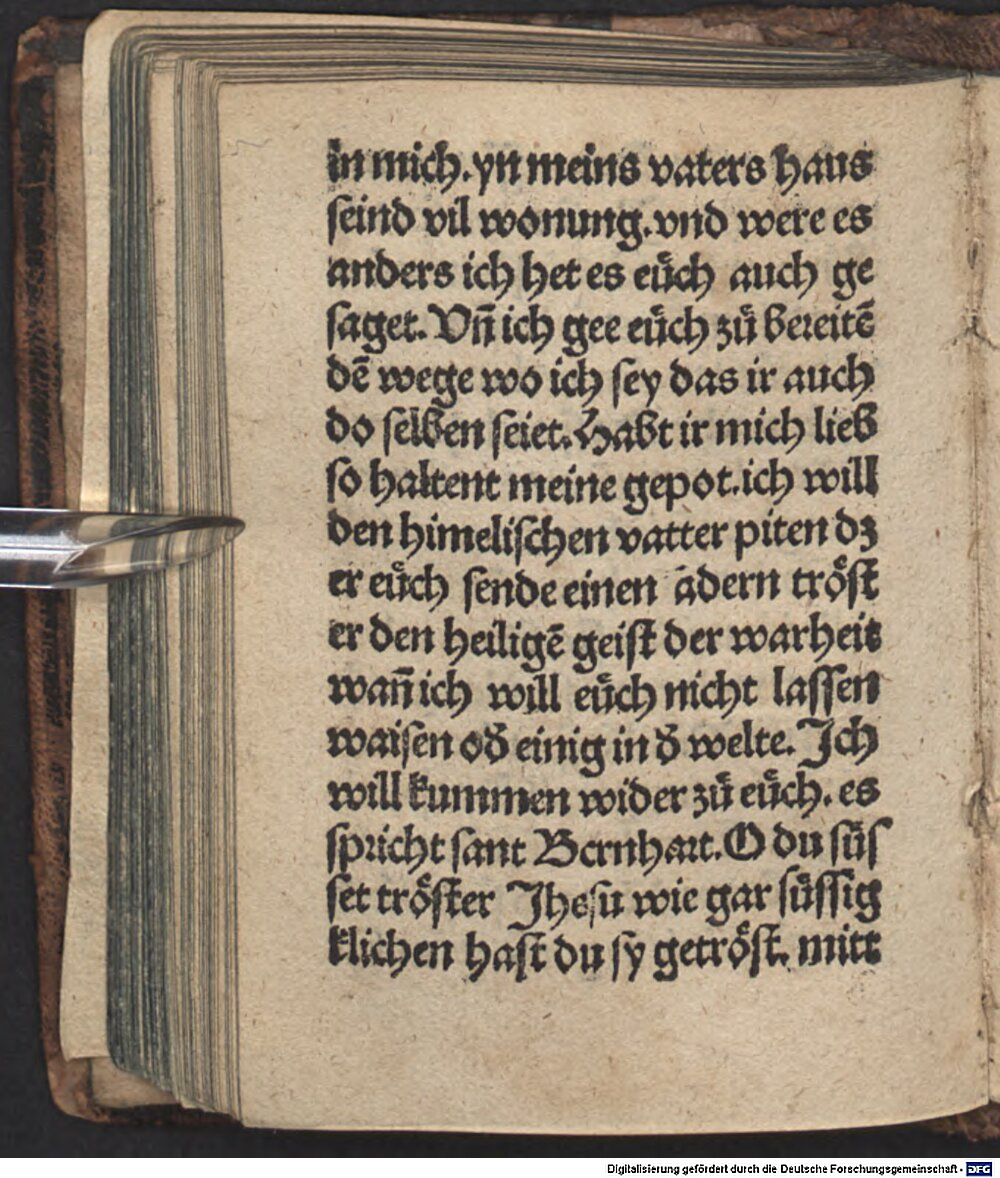 in mich. yn meins vaters haus
seind vil wonung. vnd were es
anders ich het es eüch auch ge
saget. Vn̄ ich gee eüch zů bereitē
dē wege wo ich sey das ir auch
do selben seiet. Habt ir mich lieb
so haltent meine gepot. ich will
den himelischen vatter piten dz
er eüch sende einen ādern tröst
er den heiligē geist der warheit
wan̄ ich will eüch nicht lassen
waisen od̄ einig in d̄ welte. Ich
will kummen wider zů eüch. es
spricht sant Bernhart. O du süs
set tröster Jhesu wie gar süssig
klichen hast du sy getröst. mitt
Digitalisierung gefördert durch die Deutsche Forschungsgemeinschaft - DFG